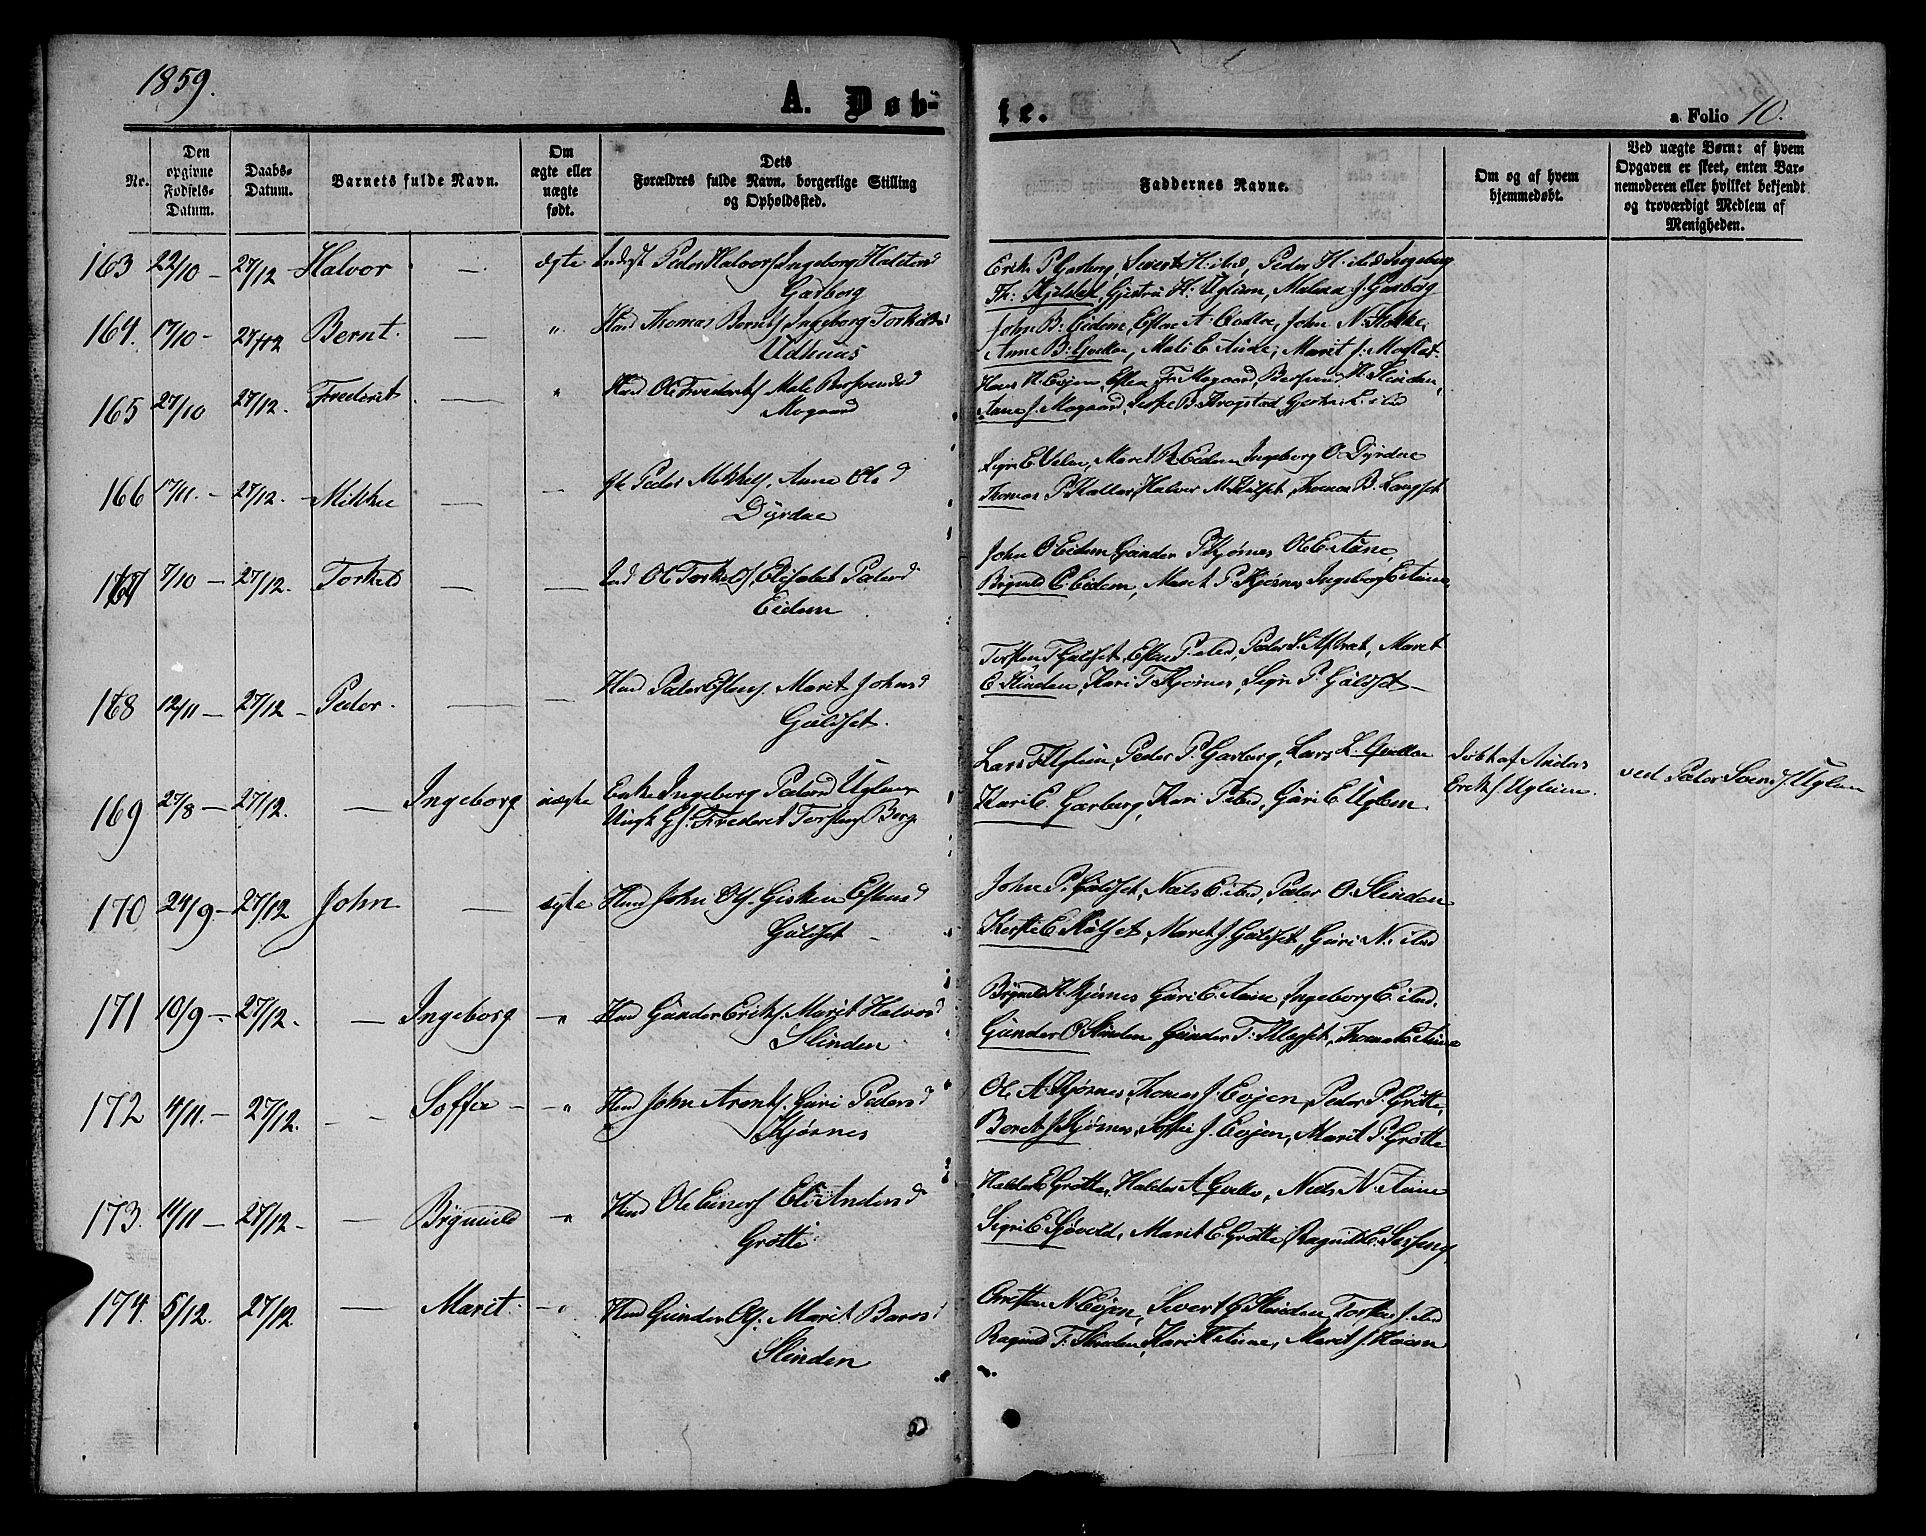 1859.
A. Døb-
te.
a. Folio 10.
Nr.
Den opgivne Fødsels-Datum.
Daabs-Datum.
Barnets fulde Navn.
Om ægte eller uægte født.
Dets Forældres fulde Navn, borgerlige Stilling og Opholdssted.
Faddernes Navne.
Om og af hvem hjemmedøbt.
Ved uægte Børn: af hvem Opgaven er skeet, enten Barnemoderen eller hvilket bekjendt og troværdigt Medlem af Menigheden.
163 22/10 — 27/12 Halvor — ægte Inderst Peder Halvors. Ingeborg Halstend
Garberg
Erik P Garberg, Sivert H. ibd, Peder H. ibd Ingeborg
Th: Kjelstad, Gjertru H. Uglum, Malena J. Garberg
164. 17/10 - 27/12 Bernt. — " Hmd Thomas Bernts. Ingeborg Torkilds
Udhuus
John B. Eidem, Esten A. Evellae, John N. Stokke,
Anne B. Gvellae, Mali E Aune, Marit J. Mogstad.
165 27/10 27/12. Frederik — " Hmd Ole Frederiks. Mali Bersvends
Mogaard
Hans H. Evjen, Esten Fr. Mogaard, Bersvend H. Slinden,
Anne J. Mogaard, B. Krogstad, L. ibd
166 17/11. - 27/12. - Mikkel — — Peder Mikkels. Anne Ols d
Dyrdae
Sigri E Velve, Maret B. Eidem, Ingeborg O. Dyrdae
Thomas P. Halvor M. Rølset, Thomas B. Langset
167 7/10 — 27/12. Torkel — — Ind Ole Torkels. Elisabet Peders d
Eidem
John O Eidem Gunder P Kjøsnes Ole E Aune,
Brynild O. Eidem, Maret P. Kjøsnes, Ingeborg E. Aune
168 12/11 — 27/12 — Peder. — — Hmd Peder Estens. Marit Johns d
Guldset.
Torsten T Guldset, Esten P. ibd, Peder S. Aftret, Maret
O. Slinden, Kari T. Kjøsnes, Sigri P Guldset —
169 27/8 — 27/12. — Ingeborg uægte Enke Ingeborg Peders d Uglum
Ungk Gs. Frederik Torstens. Berg.
Lars F. Uglum, Peder P. Garberg, Lars L. Gvellae
Kari E. Garberg, Kari P. ibd, Guri E Uglum.
Døbt af Anders
Eriks Uglum.
ved Peder Sven s. Uglum
170 24/9 — 27/12 John — ægte Hmd John Ols. Gisken Estens d
Guldset
John P. Guldset, Niels E ibd, Peder O. Slinden
Kirsti E Rølset, Maret J. Guldset, Guri N. ibd
171 10/9 - 27/12. — Ingeborg — " Hmd Gunder Eriks. Marit Halvors d
Slinden
Brynild H. Kjøsnes Guri E. Aune Ingeborg E. ibd.
Gunder O Slinden Gunder T. Klegset, Thomas E Aune
172 4/11. — 27/12. — Soffie — — " Hmd John Arents. Guri Peders d
Kjøsnes
Ole A. Kjøsnes, Thomas J. Evjen, Peder P. Grøtte,
Beret J. Kjøsnes, Soffie J. Evjen, Marit P. Grøtte
173. 14/11 — 27/12 — — Brynild — " Hmd Ole Einers. Eli Anders d
Grøtte
Halder E Grøtte, Halder A Gvelle, Niels N. Aune
Sigri E Sjøvold, Marit E. Grøtte, Ragnild E.
174. 5/12. 27/12 — Marit. — " Hmd Gunder Ols. Marit Baros d
Slinden
Christen N Evjen, Sivert G Slinden, Torsten J. ibd
Ragnild T. Slinden, Kari Aune, Marit J. Hoven